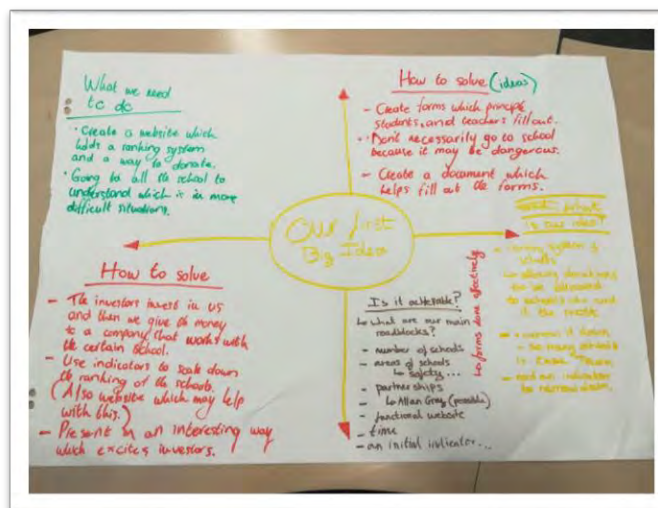 What we need
to do
· Create a website which
holds a ranking system
and a way to donate.
· Going to all the school to
understand which is in more
difficult situations.
How to solve (ideas)
- Create forms which principle
students, and teachers fill out.
· Don't necessarily go to school
because it may be dangerous.
- Create a document which
helps fill out the forms.
Our first
Big Idea
is our idea?
system of
schools
How to solve
- The investors invest in us
and then we give the money
to a company that works with
the certain school.
- Use indicators to scale down
the ranking of the schools.
(Also website which may help
with this.)
- Present in an interesting way
which excites investors.
Is it achievable?
↳ what are our main
roadblocks?
- number of schools
- areas of schools
↳ safety...
- partnerships
↳ Allan Gray (possible)
- functional website
- time
- an initial indicator...
↳ forms done effectively
↳ allowing donations
to be
to schools who need
it the most
- narrow it down
- so many schools
in
- need an indicator
to narrow down.